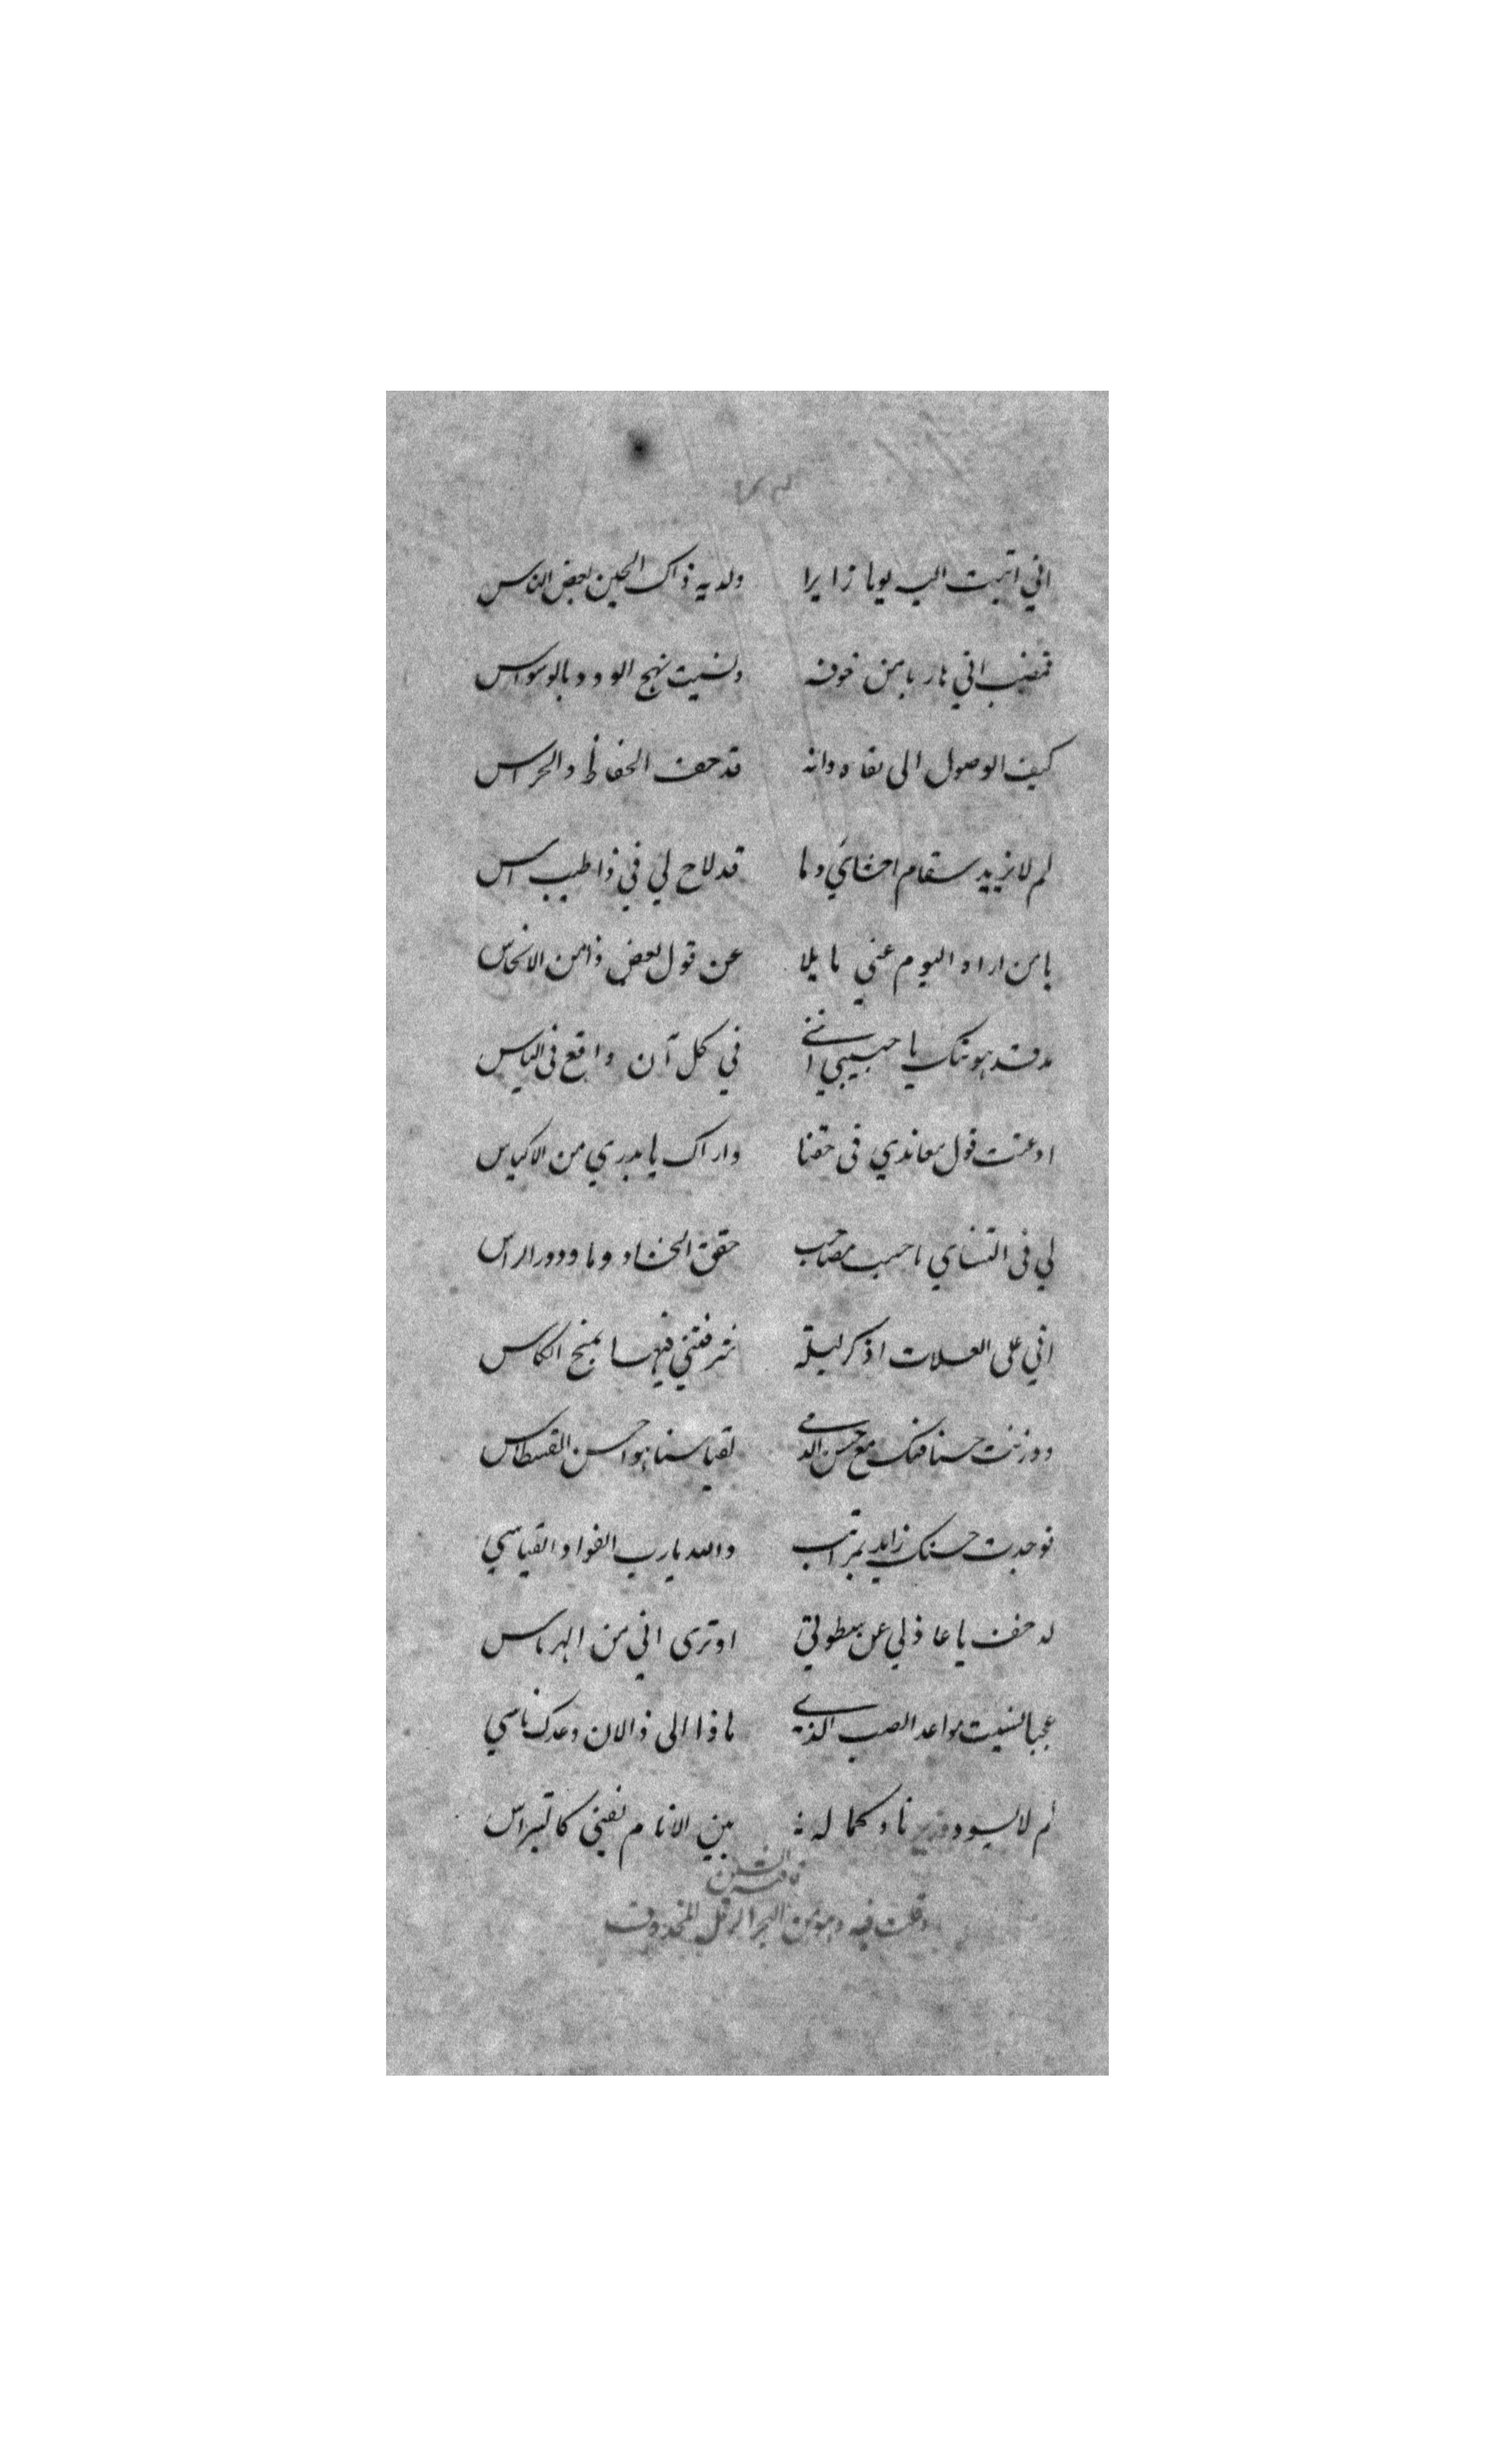 اني اتيت اليه يوما زايرا ولديه ذاك الحين بعض الناس
فمضيت اني هاربا من خوفه ونسيت نهج الود بالوسواس
كيف الوصول الى لقاه وانه قد حف الحفاظ والحراس
لم لا يزيد سقام احشاي وما قد لاح لي في ذا طبيب اس
يا من اراه اليوم عني مايلا عن قول بعض ذا من الانحاس
مذ قد هويتك يا حبيبي انني في كل آن واقع في الياس
اوعيت قول معاندي في حقنا واراك يا بدري من الاكياس
لي في التنساي احسب مصاحب حقق الحشاد وما ودور الراس
اني على العلات اذكر ليلة شرفتني فيها بمنح الكاس
ووزنت حسنا فتك مع حسن الدمى لقياسنا هو احسن القسطاس
فوجدت حسنك زايد بمراتب والله يا رب الفواد القياسي
له خف يا عاذلي عن بطولتي اوترى اني من الهرماس
عجبا نسيت مواعد الصب الذي ماذا الى ذا الان وعدك ناسي
لم لا يسود وزيرنا وكماله بين الانام يضيئ كالنبراس
قافية السين
وقلت فيه وهو من البحر الرمل المحذوف